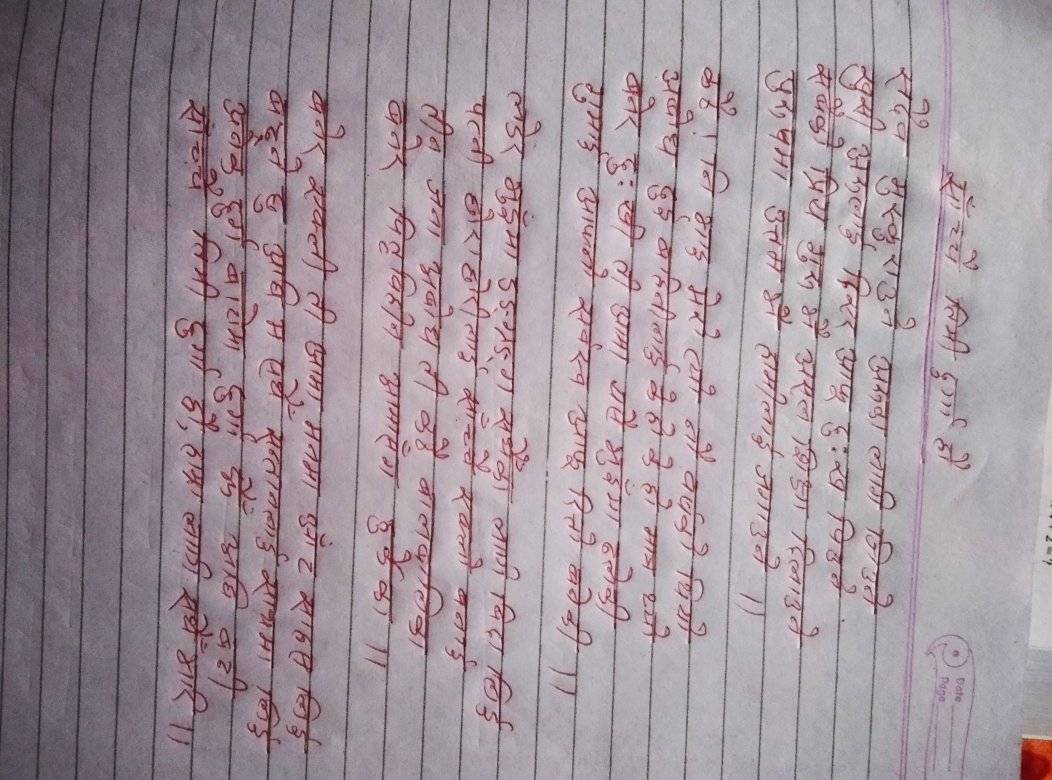 +2=?
Date
Page
साँच्चै तिमी दुर्गा हौ
सदैव मुस्कुराउने अरुका लागि जिउने
खुसी अरुलाई दिएर आफू दुःख पिउने
सबैको प्रिय गुरु भै असल शिक्षा दिलाउने
पुरुषमा उत्तम भै हामीलाई जगाउने ।।
कठै! नि भाइ मेरो त्यो नौ वर्षको थियो
अबोध दुई बहिनीलाई के हो के हो मात्र थ्यो
बनेर दुःखी ती आमा यसै भुइँमा ढलेकी
गुमाई आफ्नो सर्वस्व आफू रित्तो बनेकी ।।
लडेर भुइँमा डङ्ग्रङ्ग सधैँका लागि बिदा लिई
पत्नी छोराछोरीलाई साँच्चै एक्लो बनाई
तीन जना अबोध ती कठै बालबालिका
बनेर पितृविहीन आमासँग हुर्केका ।।
बनेर एक्ली ती आमा मनमा आँट साहस लिई
बढ्ने छु अघि म सधैँ सन्तानलाई साथमा लिई
अनेक दुर्ग बाटोमा दुर्गा झैँ अघि बढी
साँच्चै तिमी दुर्गा हौ, हाम्रा लागि सधैँ भरि ।।